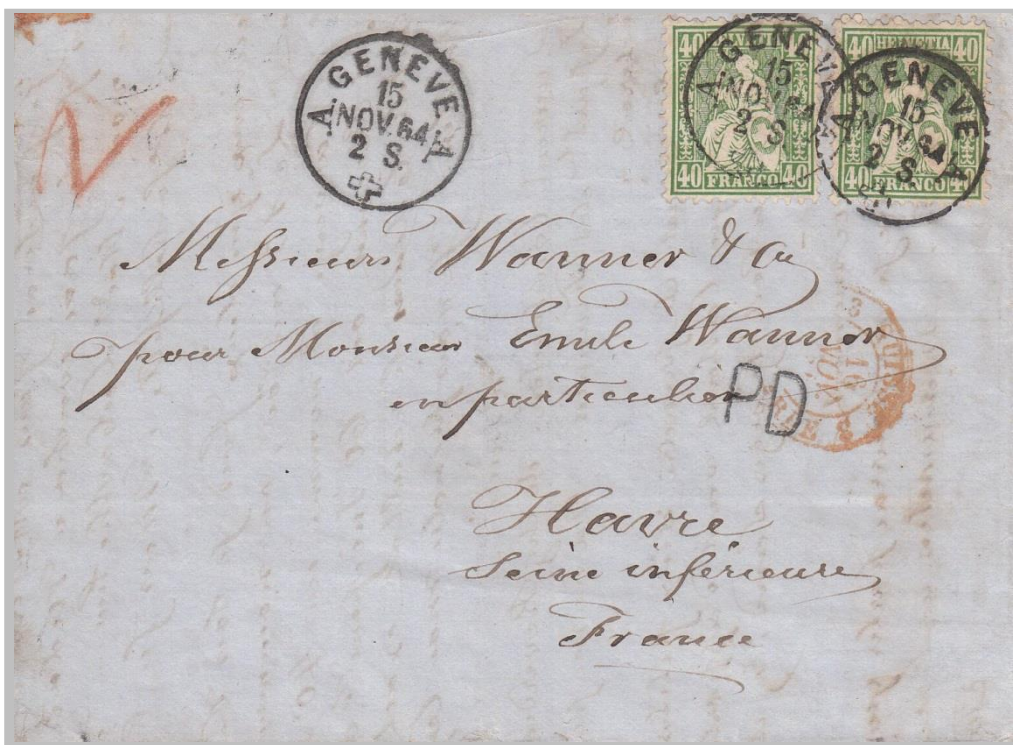 A. GENEVE A
15
NOV. 64
2 S.
40 HELVETIA 40
40 FRANCO 40
A. GENEVE A
15
NOV. 64
2 S.
40 HELVETIA 40
40 FRANCO 40
A. GENEVE A
15
NOV. 64
2 S.
Messieurs Wanner & Cie
pour Monsieur Emile Wanner
en particulier
PD
SUISSE
16
NOV.
Havre
Seine inférieure
France